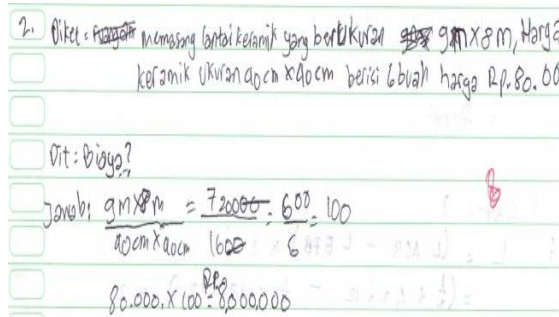 2. Diket = memasang lantai keramik yang berukuran 9m x 8m, Harga
keramik ukuran 40cm x 40cm berisi 6 buah harga Rp. 80.00
Dit : Biaya?
Jawab: 9m x 8m / 40cm x 40cm = 720000 / 1600 = 600 / 6 = 100
80.000, x 100 = Rp. 8,000,000